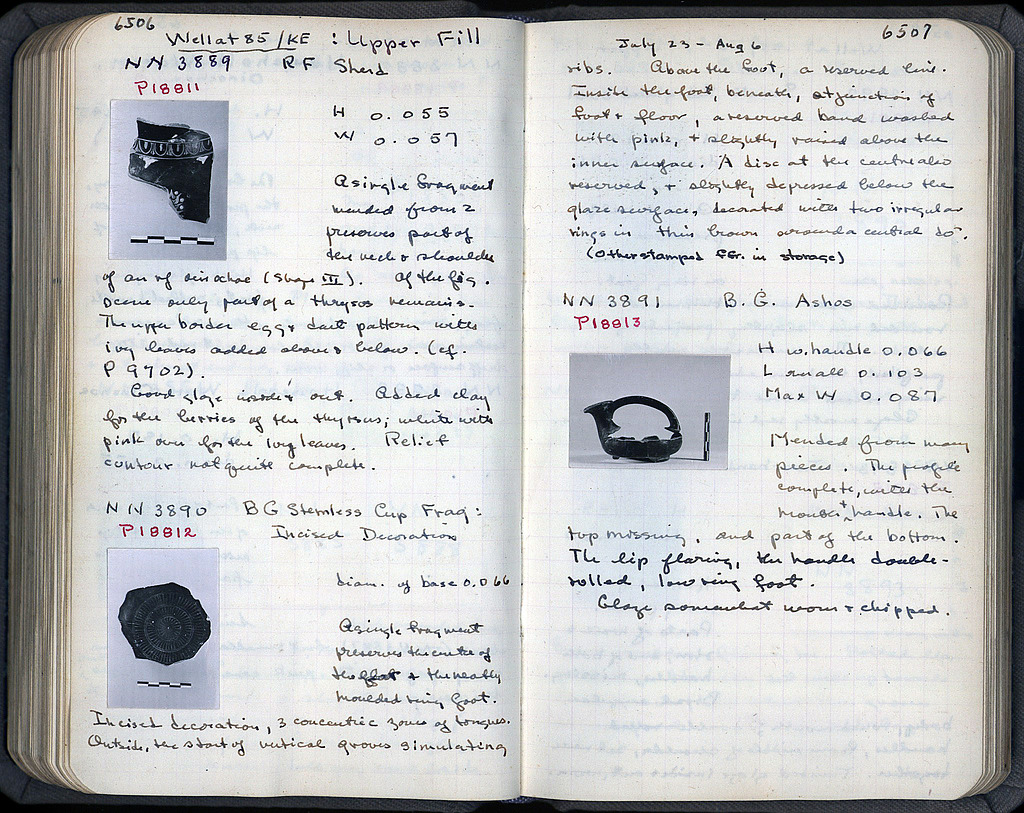 6506
Well at 85/KE : Upper Fill
NN 3889 RF Sherd
P18811
H 0.055
W 0.057
A single fragment
mended from 2
preserves part of
the neck & shoulder
of an rf oinochoe (Shape III). Of the fig.
scene only part of a thyrsos remains.
The upper border egg & dart pattern with
ivy leaves added above & below. (cf.
P 9702).
Good glaze inside & out. Added clay
for the berries of the thyrsus; white with
pink over for the ivy leaves. Relief
contour not quite complete.
NN 3890 BG Stemless Cup Frag:
P18812 Incised Decoration
diam. of base 0.066
A single fragment
preserves the centre of
the & the neatly
moulded ring foot.
Incised decoration, 3 concentric zones of tongues.
Outside, the start of vertical grooves simulating
6507
July 23 - Aug 6
ribs. Above the foot, a reserved line.
Inside the foot, beneath, at junction of
foot & floor, a reserved band washed
with pink, & slightly raised above the
inner surface. A disc at the centre also
reserved, & slightly depressed below the
glaze surface, decorated with two irregular
rings in thin brown around a central do̅.
(Other stamped Fgr. in storage)
NN 3891 B.G. Askos
P18813
H w. handle 0.066
L over all 0.103
Max W 0.087
Mended from many
pieces. The profile
complete, with the
mouth + handle. The
top missing, and part of the bottom.
The lip flaring, the handle double-
rolled, low ring foot.
Glaze somewhat worn & chipped.